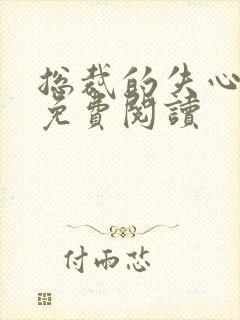 总裁的失心
免費閱讀
付雨芯